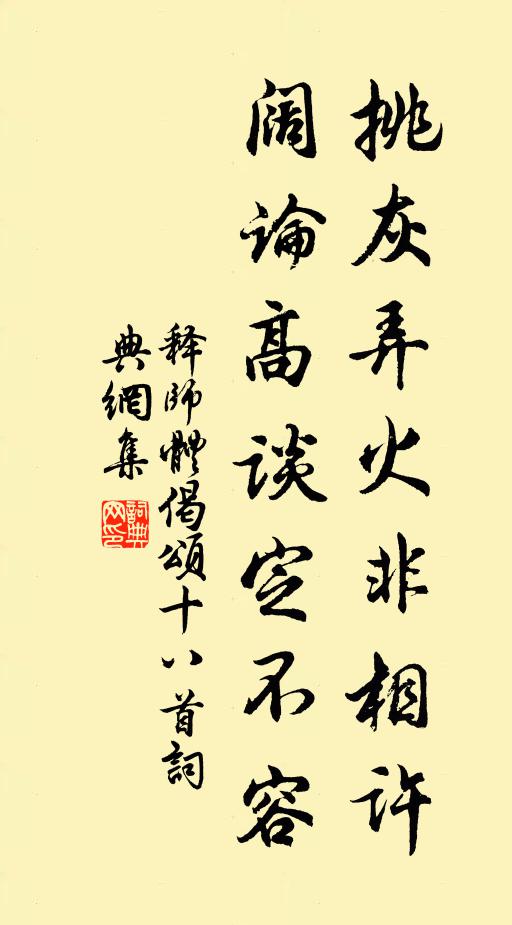 挑灰弄火非相许
阔论高谈定不容
释师體偈頌十八首詞
典網集
詞典
网印